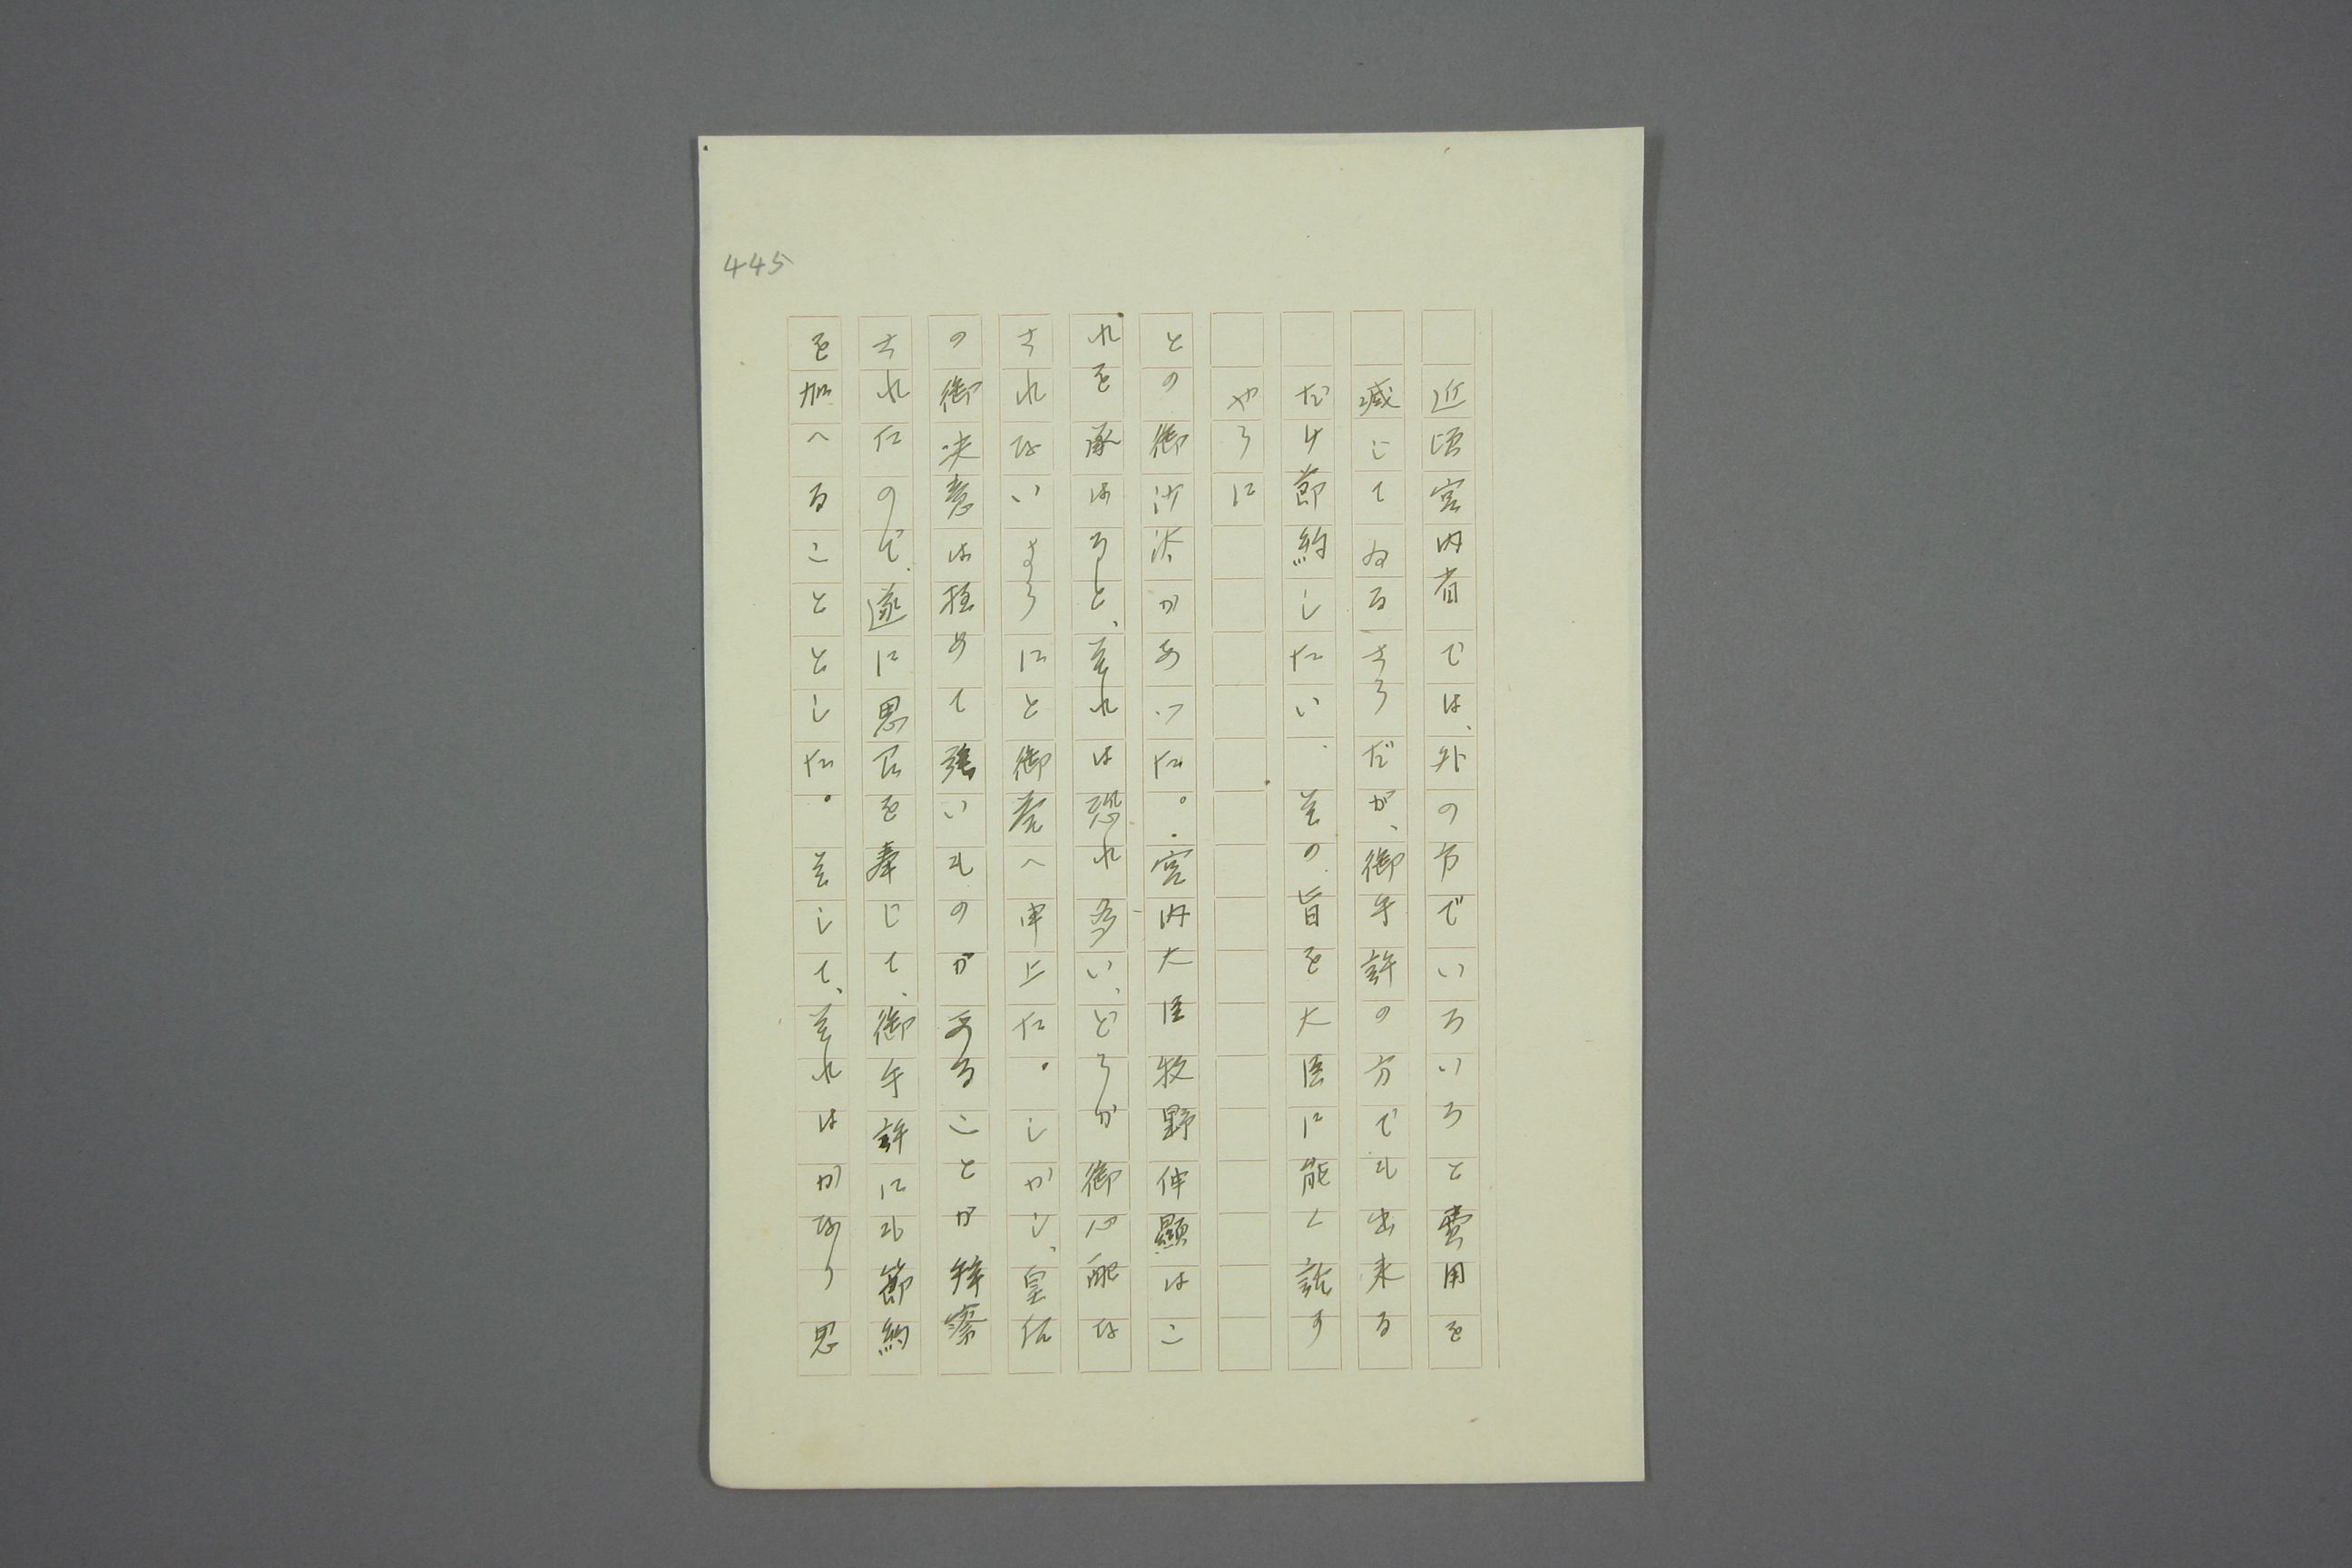 445
近頃宮内省では、外の方でいろいろと費用を
減じてゐるさうだが、御手許の方でも出来る
だけ節約したい、其の旨を大臣に能く話す
やうに
との御沙汰があつた。宮内大臣牧野伸顕はこ
れを承はると、其れは恐れ多い、どうか御心配な
されないやうにと御答へ申上た。しかし、皇后
の御決意は極めて強いものがあることが拝察
されたので、遂に思召を奉じて、御手許にも節約
を加へることとした。其して、其れはかなり思